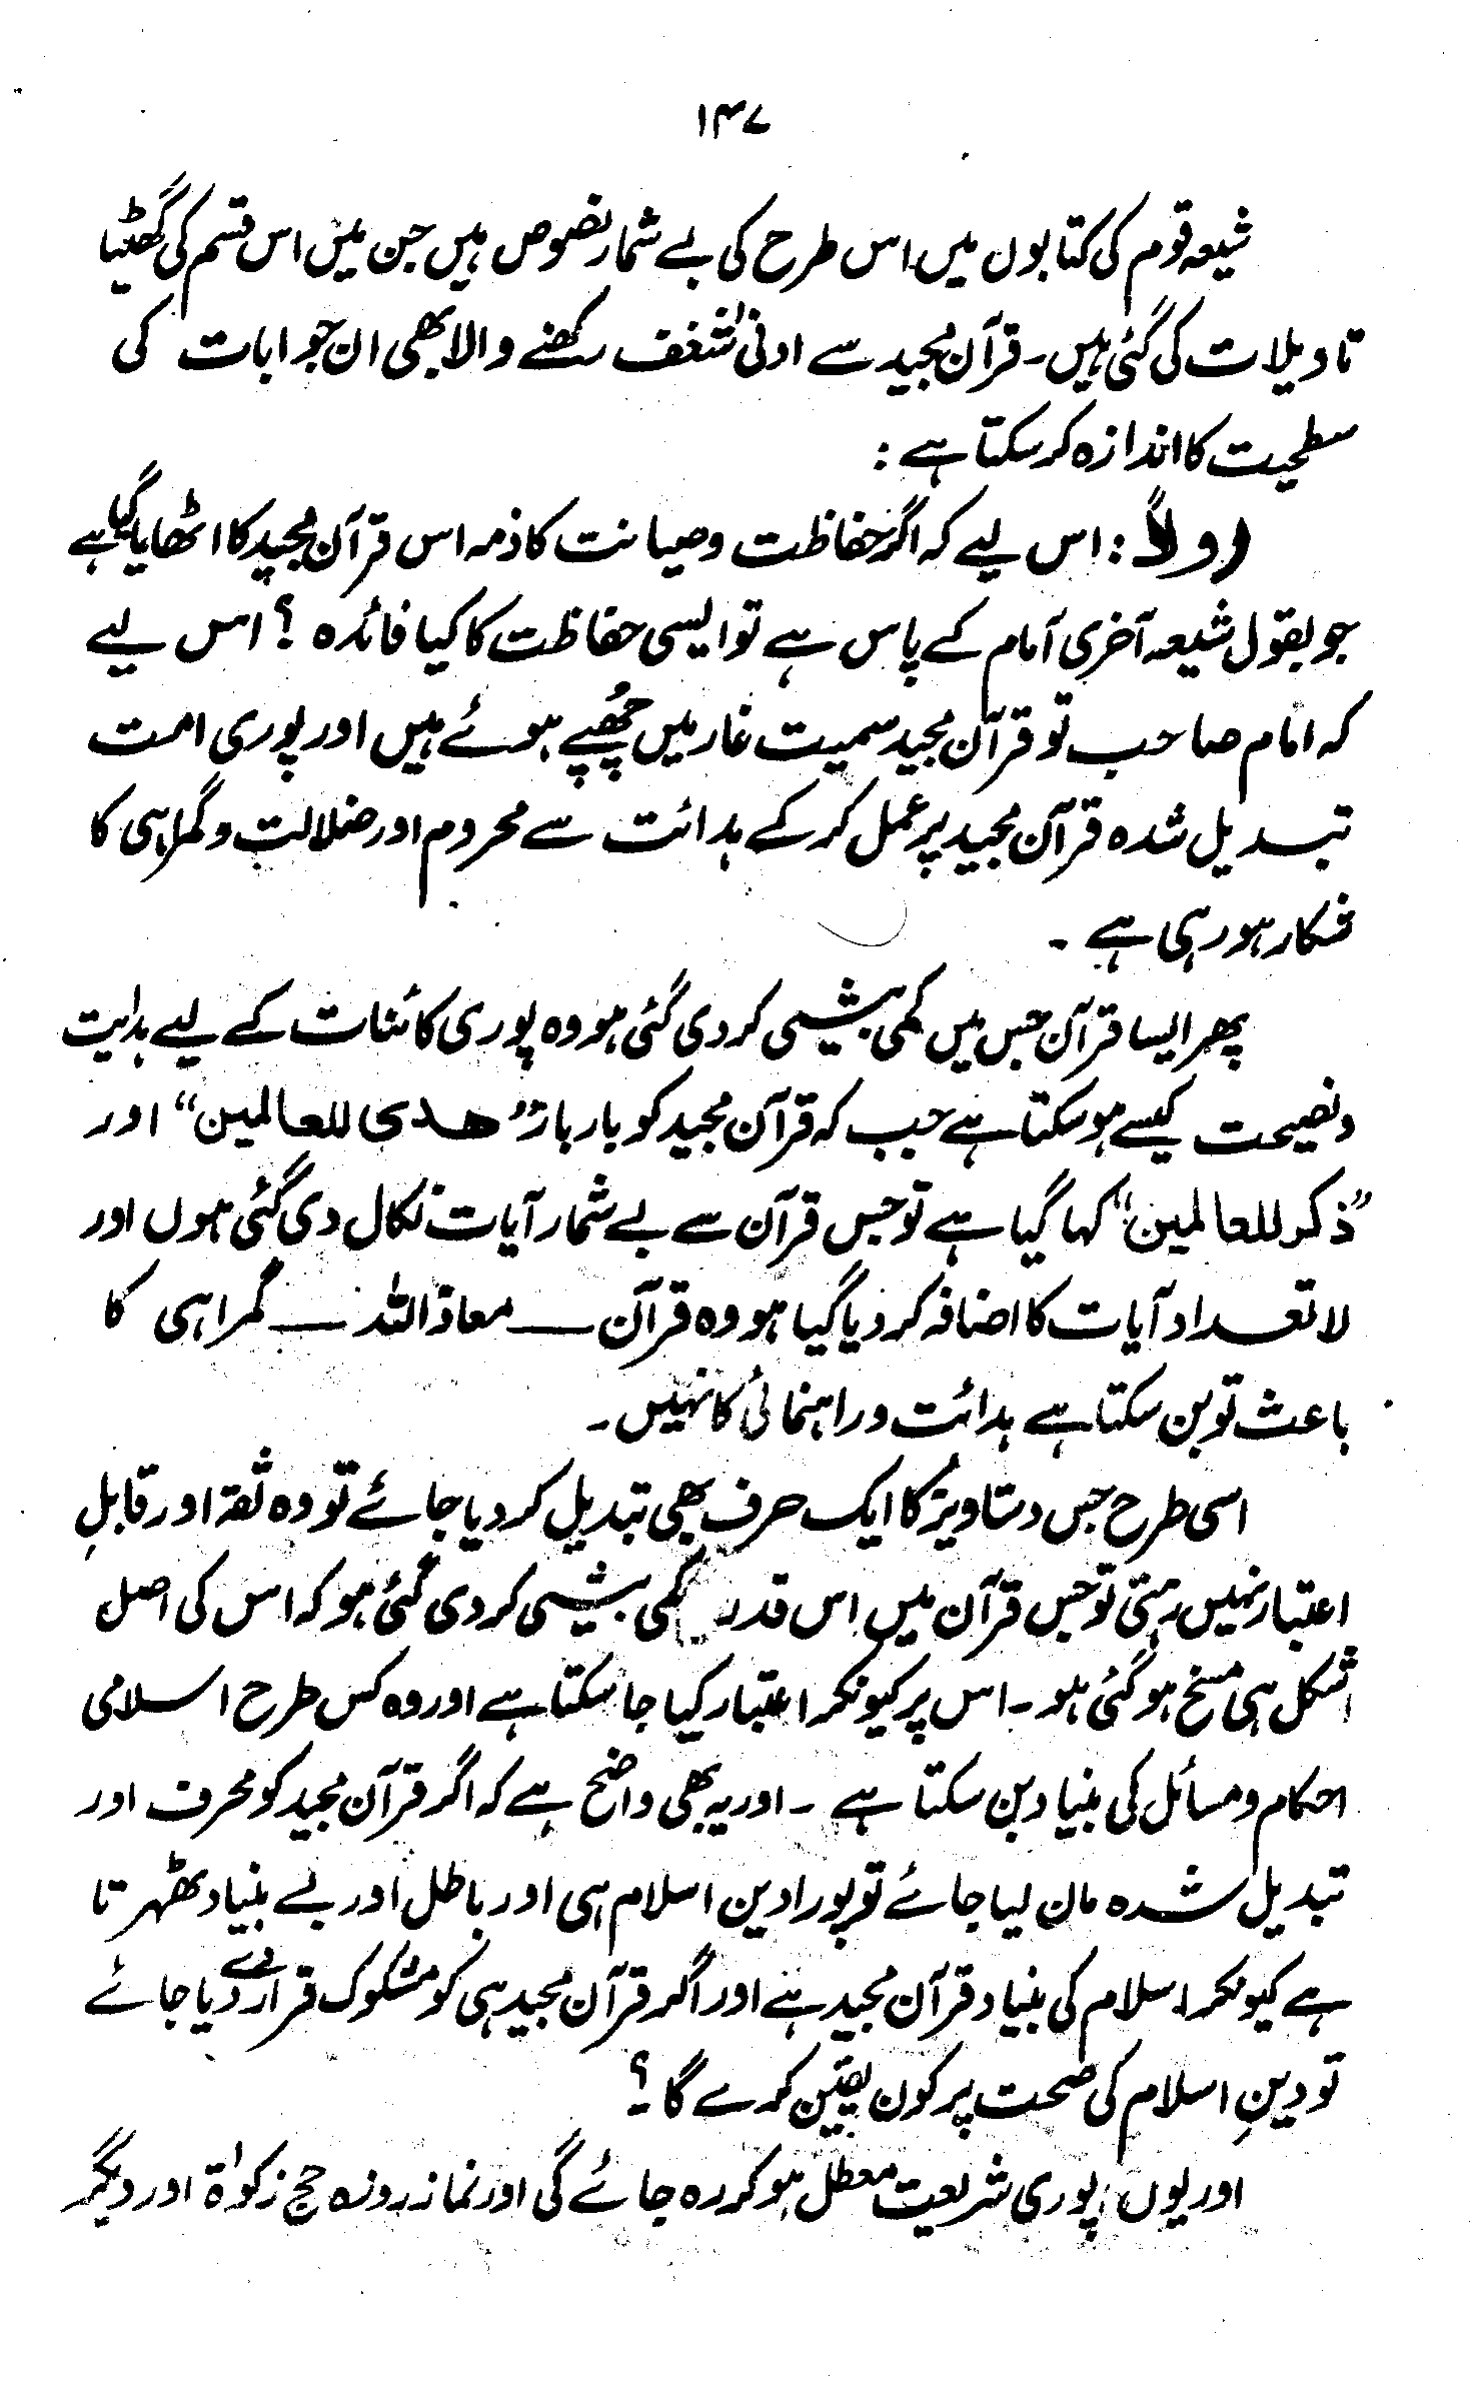 ۱۴۷
شیعہ قوم کی کتابوں میں اس طرح کی بے شمار نصوص ہیں جن میں اس قسم کی گھٹیا
تاویلات کی گئی ہیں۔ قرآن مجید سے ادنیٰ شغف رکھنے والا بھی ان جوابات کی
سطحیت کا اندازہ کر سکتا ہے :
اولاً : اس لیے کہ اگر حفاظت و صیانت کا ذمہ اس قرآن مجید کا اٹھایا گیا ہے
جو بقول شیعہ آخری امام کے پاس ہے تو ایسی حفاظت کا کیا فائدہ ؟ اس لیے
کہ امام صاحب تو قرآن مجید سمیت غار میں چُھپے ہوئے ہیں اور پوری امت
تبدیل شدہ قرآن مجید پر عمل کر کے ہدائت سے محروم اور ضلالت و گمراہی کا
شکار ہو رہی ہے ۔
پھر ایسا قرآن جس میں کمی بیشی کر دی گئی ہو وہ پوری کائنات کے لیے ہدایت
و نصیحت کیسے ہو سکتا ہے جب کہ قرآن مجید کو بار بار ”ھدی للعالمین“ اور
”ذکر للعالمین“ کہا گیا ہے تو جس قرآن سے بے شمار آیات نکال دی گئی ہوں اور
لا تعداد آیات کا اضافہ کر دیا گیا ہو وہ قرآن ـــ معاذ اللہ ـــ گمراہی کا
باعث تو بن سکتا ہے ہدائت و راہنمائی کا نہیں۔
اسی طرح جس دستاویز کا ایک حرف بھی تبدیل کر دیا جائے تو وہ ثقہ اور قابلِ
اعتبار نہیں رہتی تو جس قرآن میں اس قدر کمی بیشی کر دی گئی ہو کہ اس کی اصل
شکل ہی مسخ ہو گئی ہو۔ اس پر کیونکر اعتبار کیا جا سکتا ہے اور وہ کس طرح اسلامی
احکام و مسائل کی بنیاد بن سکتا ہے ۔ اور یہ بھی واضح ہے کہ اگر قرآن مجید کو محرف اور
تبدیل شدہ مان لیا جائے تو پورا دین اسلام ہی اور باطل اور بے بنیاد ٹھہرتا
ہے کیونکہ اسلام کی بنیاد قرآن مجید ہے اور اگر قرآن مجید ہی کو مشکوک قرار دے دیا جائے
تو دینِ اسلام کی صحت پر کون یقین کرے گا ؟
اور یوں پوری شریعت معطل ہو کر رہ جائے گی اور نماز روزہ حج زکوٰۃ اور دیگر